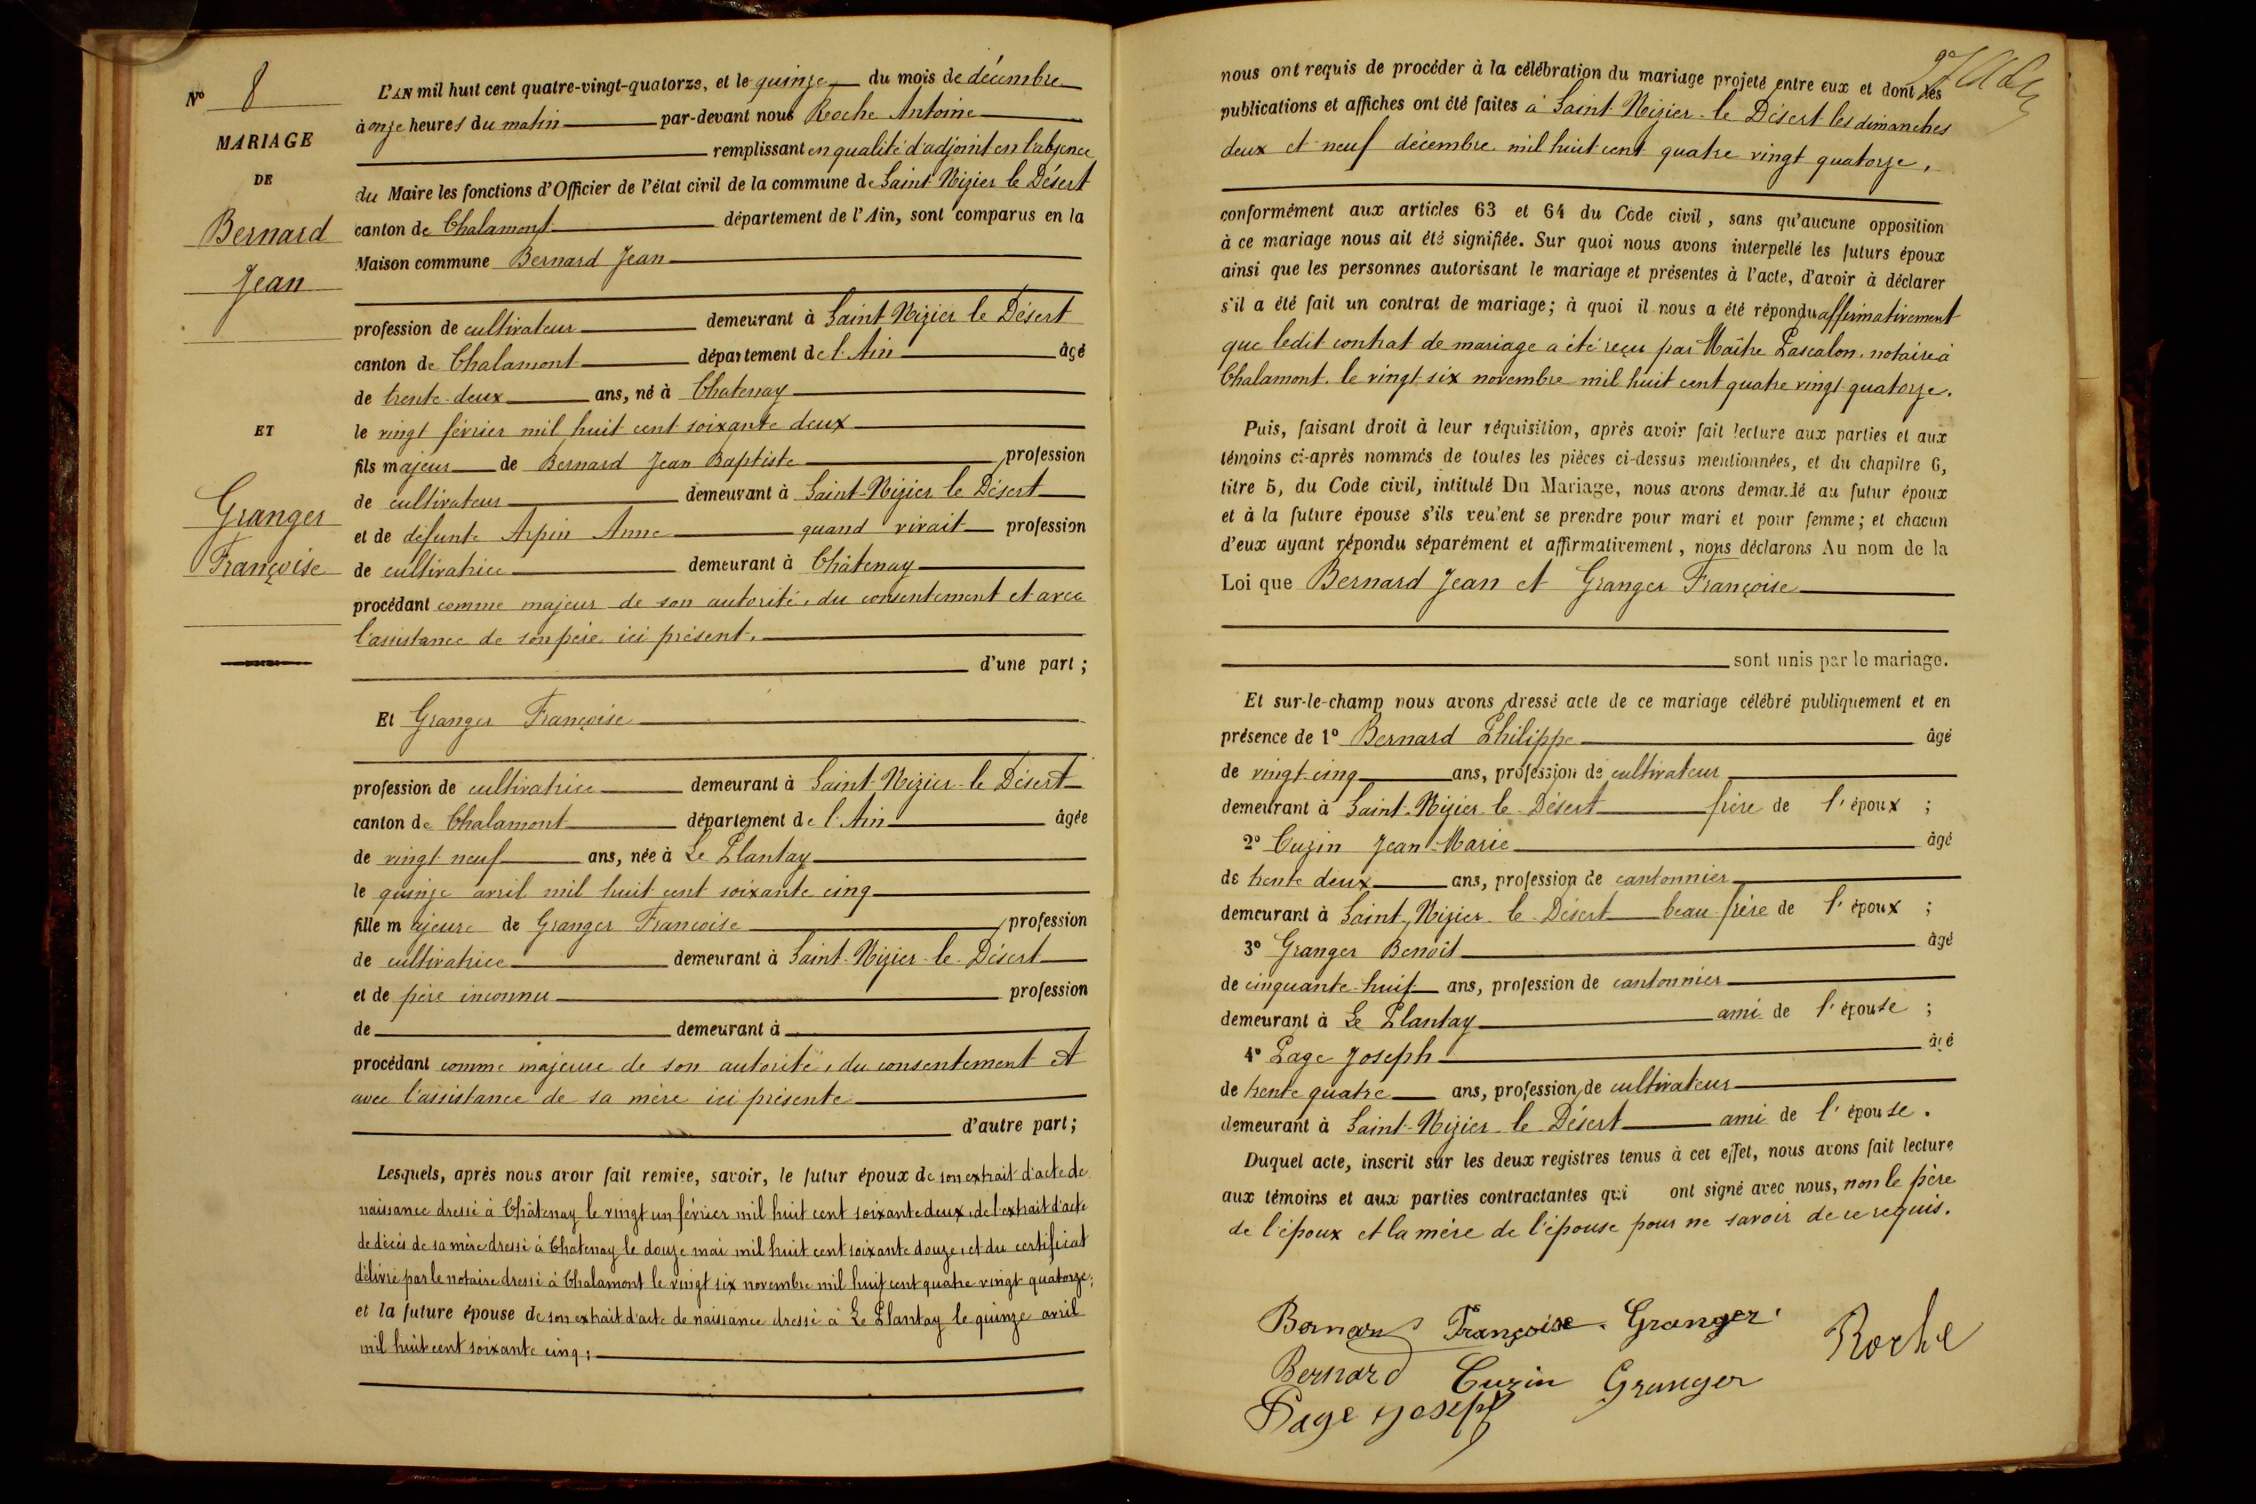 N° 8
MARIAGE
DE
Bernard
Jean
ET
Granger
Françoise
L'AN mil huit cent quatre-vingt-quatorze, et le quinze du mois de décembre
à onze heures du matin par-devant nous Roche Antoine
remplissant en qualité d'adjoint en l'absence
du Maire les fonctions d'Officier de l'état civil de la commune de Saint Nizier le Désert
canton de Chalamont département de l'Ain, sont comparus en la
Maison commune Bernard Jean
profession de cultivateur demeurant à Saint Nizier le Désert
canton de Chalamont département de l'Ain âgé
de trente-deux ans, né à Chatenay
le vingt février mil huit cent soixante deux
fils majeur de Bernard Jean Baptiste profession
de cultivateur demeurant à Saint-Nizier le Désert
et de défunte Arpin Anne quand vivait profession
de cultivatrice demeurant à Châtenay
procédant comme majeur de son autorité, du consentement et avec
l'assistance de son père ici présent.
d'une part ;
Et Granger Françoise
profession de cultivatrice demeurant à Saint-Nizier-le Désert
canton de Chalamont département de l'Ain âgée
de vingt neuf ans, née à Le Plantay
le quinze avril mil huit cent soixante cinq
fille majeure de Granger Francoise profession
de cultivatrice demeurant à Saint-Nizier-le-Désert
et de père inconnu profession
de demeurant à
procédant comme majeure de son autorité, du consentement et
avec l'assistance de sa mère ici présente
d'autre part ;
Lesquels, après nous avoir fait remise, savoir, le futur époux de son extrait d'acte de
naissance dressé à Châtenay le vingt un février mil huit cent soixante deux, de l'extrait d'acte
de décès de sa mère dressé à Chatenay le douze mai mil huit cent soixante douze, et du certificat
délivré par le notaire dressé à Chalamont le vingt six novembre mil huit cent quatre vingt quatorze;
et la future épouse de son extrait d'acte de naissance dressé à Le Plantay le quinze avril
mil huit cent soixante cinq;
nous ont requis de procéder à la célébration du mariage projeté entre eux et dont les
publications et affiches ont été faites à Saint-Nizier-le Désert les dimanches
deux et neuf décembre mil huit cent quatre vingt quatorze,
conformément aux articles 63 et 64 du Code civil, sans qu'aucune opposition
à ce mariage nous ait été signifiée. Sur quoi nous avons interpellé les futurs époux
ainsi que les personnes autorisant le mariage et présentes à l'acte, d'avoir à déclarer
s'il a été fait un contrat de mariage ; à quoi il nous a été répondu affirmativement
que ledit contrat de mariage a été reçu par Maître Pascalon, notaire à
Chalamont, le vingt-six novembre mil huit cent quatre vingt-quatorze.
Puis, faisant droit à leur réquisition, après avoir fait lecture aux parties et aux
témoins ci-après nommés de toutes les pièces ci-dessus mentionnées, et du chapitre 6,
titre 5, du Code civil, intitulé Du Mariage, nous avons demandé au futur époux
et à la future épouse s'ils veulent se prendre pour mari et pour femme ; et chacun
d'eux ayant répondu séparément et affirmativement, nous déclarons Au nom de la
Loi que Bernard Jean et Granger Françoise
sont unis par le mariage.
Et sur-le-champ nous avons dressé acte de ce mariage célébré publiquement et en
présence de 1° Bernard Philippe âgé
de vingt-cinq ans, profession de cultivateur
demeurant à Saint-Nizier-le-Désert frère de l'époux ;
2° Cuzin Jean-Marie âgé
de trente deux ans, profession de cantonnier
demeurant à Saint-Nizier-le-Désert beau-frère de l'époux ;
3° Granger Benoît âgé
de cinquante-huit ans, profession de cantonnier
demeurant à Le Plantay ami de l'épouse ;
4° Page Joseph âgé
de trente quatre ans, profession de cultivateur
demeurant à Saint-Nizier-le-Désert ami de l'épouse.
Duquel acte, inscrit sur les deux registres tenus à cet effet, nous avons fait lecture
aux témoins et aux parties contractantes qui ont signé avec nous, non le père
de l'époux et la mère de l'épouse pour ne savoir de ce requis.
Bernard Françoise Granger
Roche
Bernard Cuzin Granger
Page Joseph